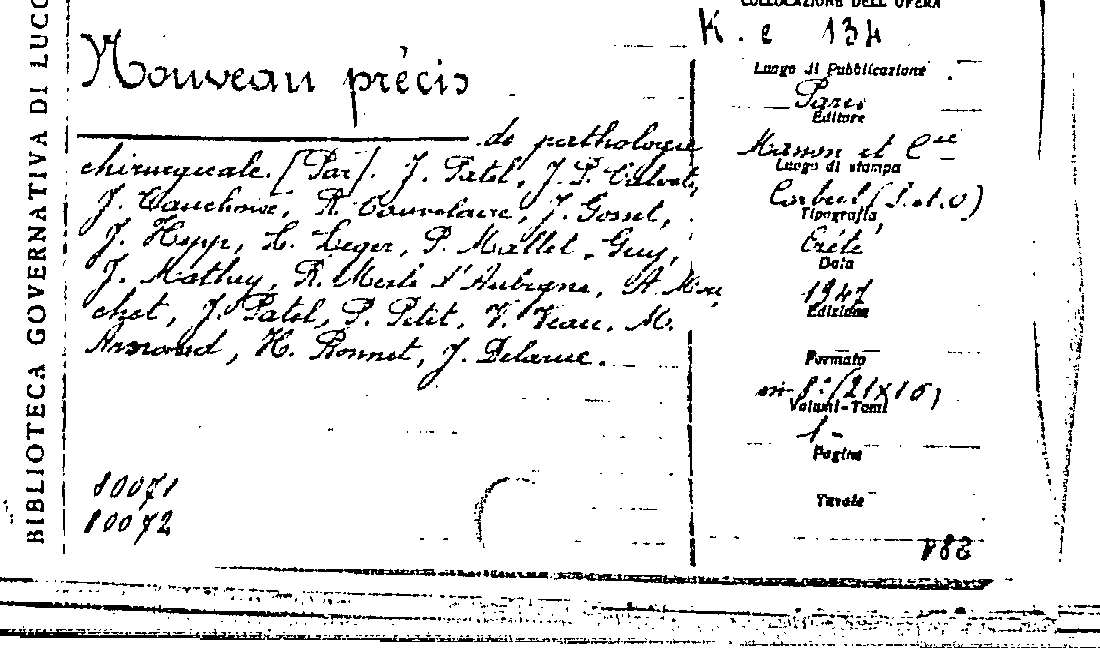 BIBLIOTECA GOVERNATIVA DI LUCC
COLLOCAZIONE DELL'OPERA
K. e 134
Nouveau précis
de pathologie
chirurgicale. [Par]. J. Patel, J. P. Calvet,
J. Cauchoix, R. Couvelaire, J. Gosset,
J. Hepp, L. Leger, P. Mallet-Guy,
J. Mathey, R. Merle d'Aubigne, A. Mou
chet, J. Patel, P. Petit, V. Veau, M.
Armand, H. Bonnet, J. Delarue.
80071
80072
Luogo di Pubblicazione
Paris
Editore
Masson et Cie
Luogo di stampa
Corbeil (S. et. O)
Tipografia
Crété
Data
1947
Edizione
Formato
in-8° (21x16)
Volumi-Tomi
1-
Pagine
Tavole